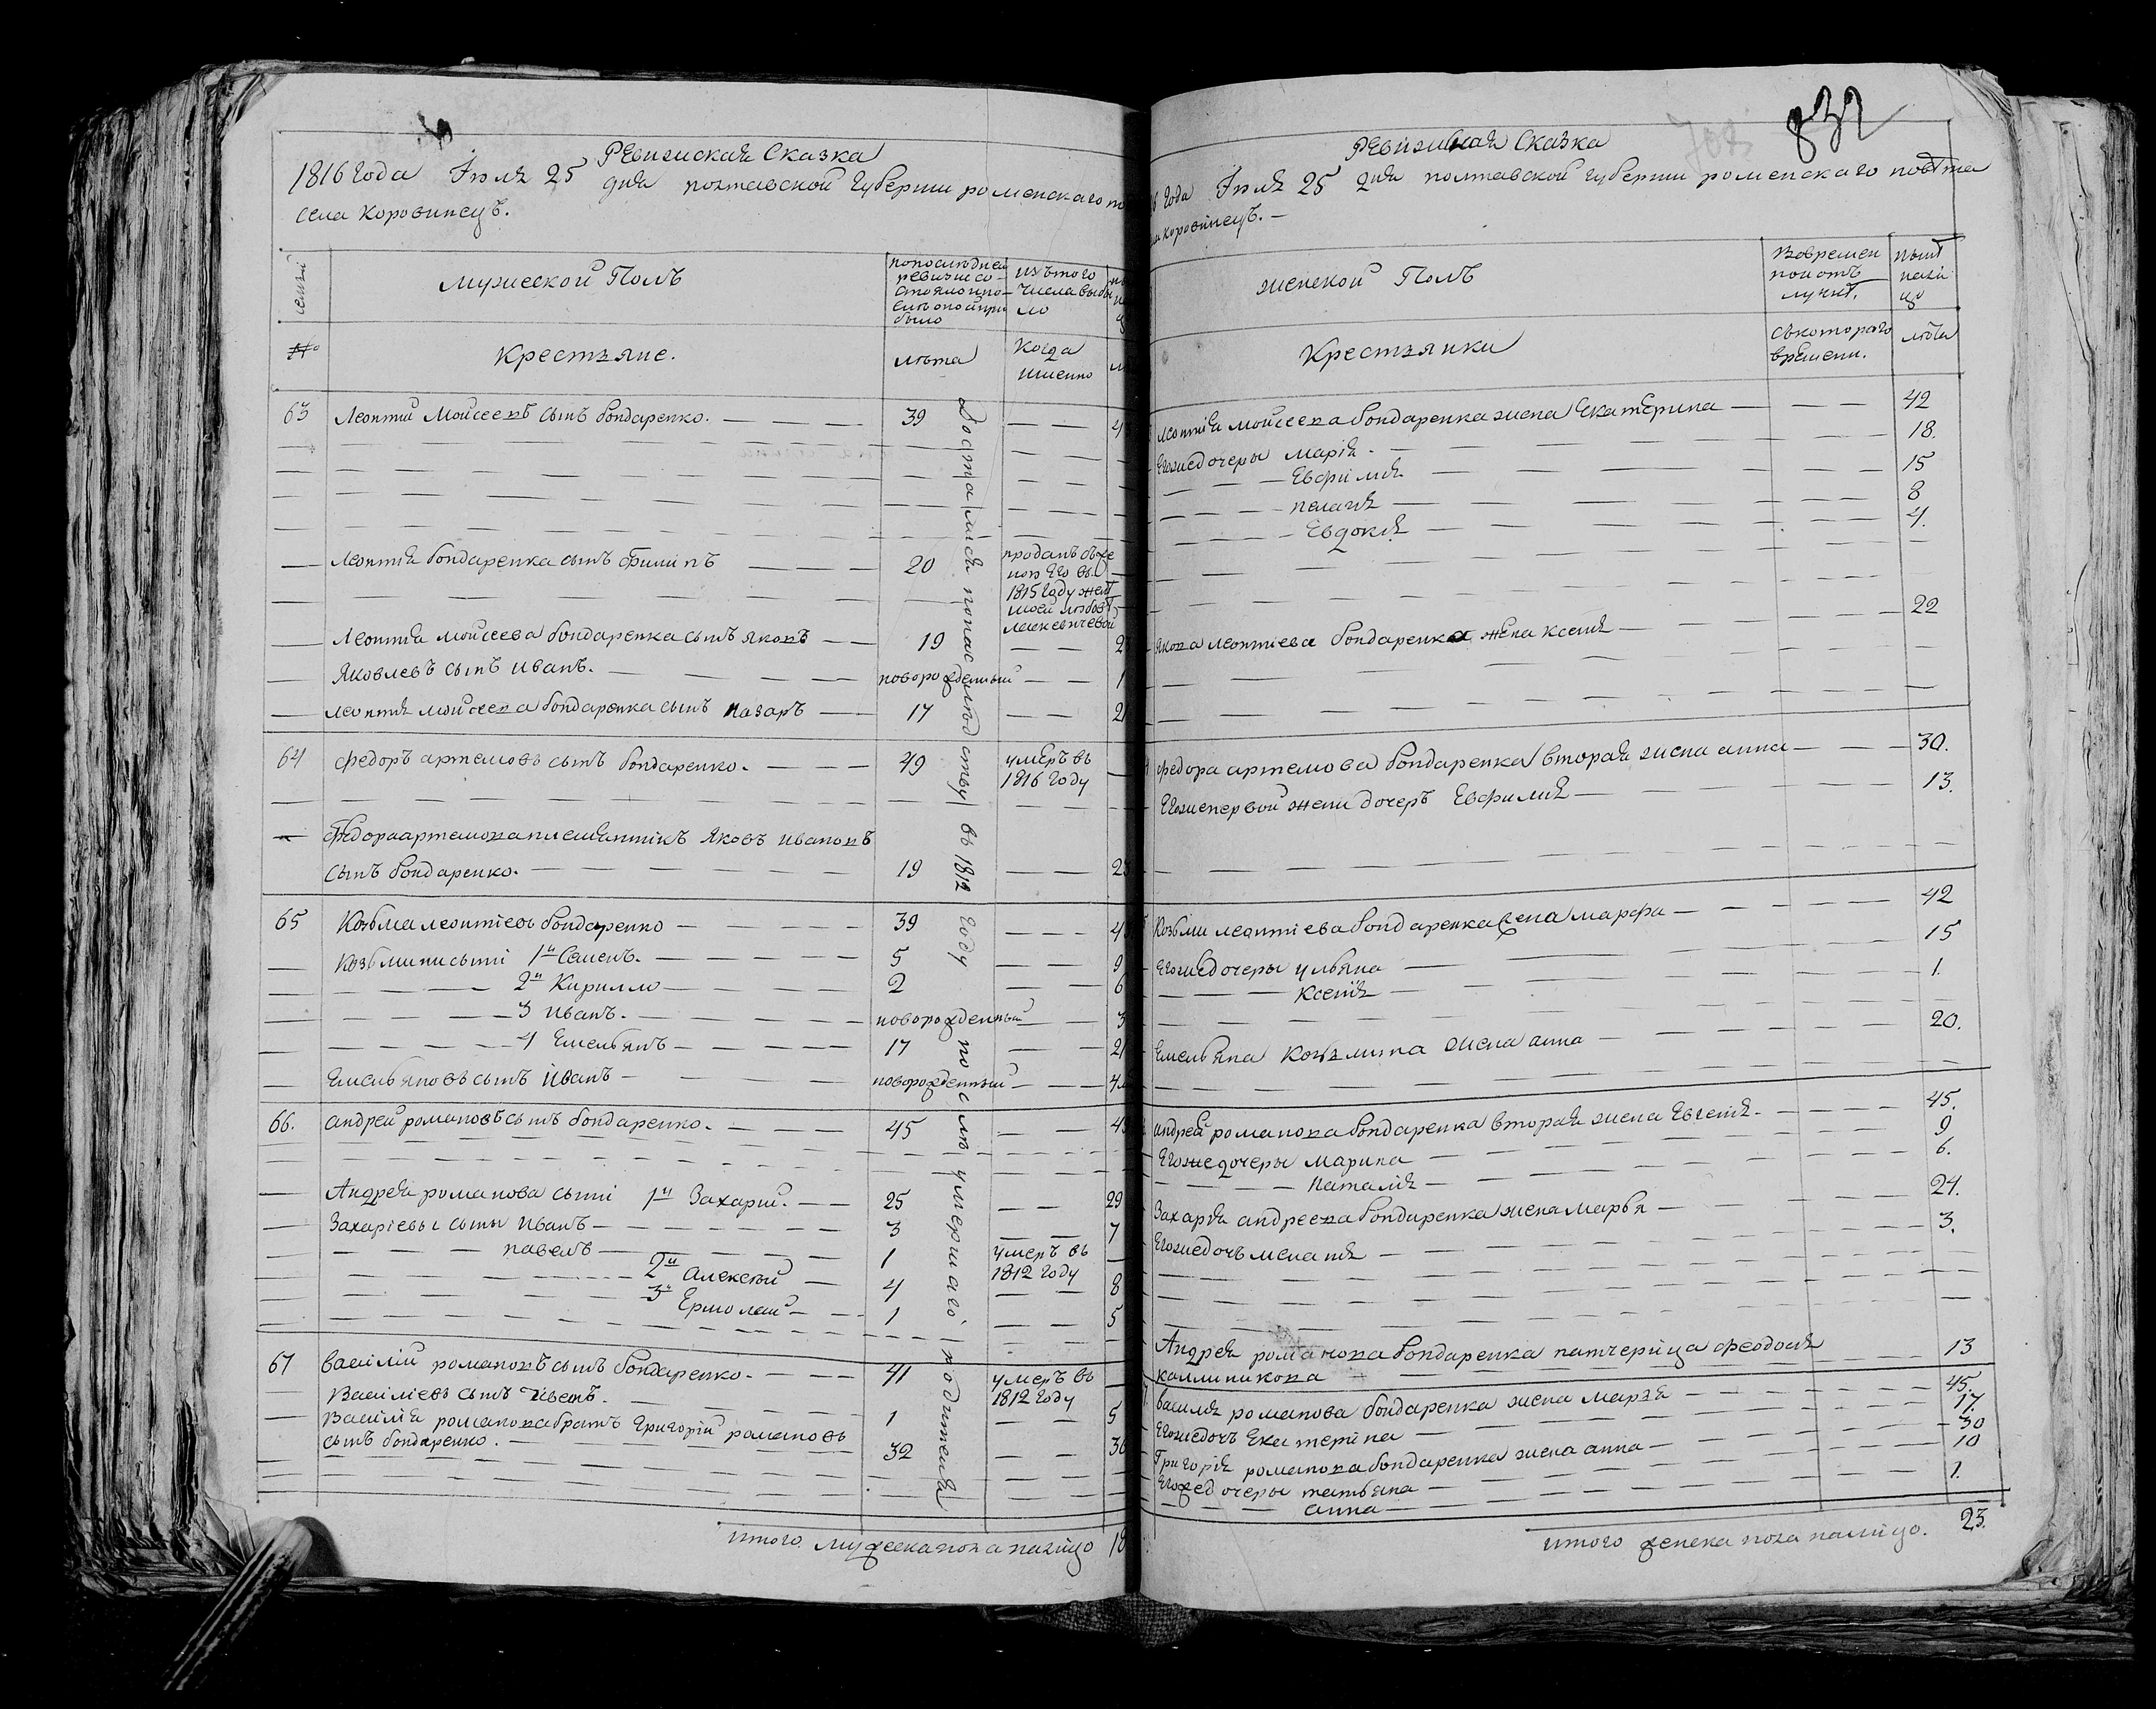 Ревизская Сказка
1816 года Июля 25 дня полтавской губернии роменского по
села коровинецъ.
семьи
мужеской Полъ
по последней
ревизии со-
стояло и по-
слѣ оной при
было
изъ того
числа выбы
ло
№
Крестьяне.
лѣта
Когда
именно
63 Леонтий Моисеевъ сынъ бондаренко. 39
Леонтія бондаренка сынъ Филипъ 20
проданъ съ же
ною его въ
1815 году
Леонтія моисеева бондаренка сынъ яковъ 19
Яковлевъ сынъ иванъ. новорожденный 1
леонтия мойсеева бондаренка сынъ назаръ 17 21
64 федоръ артемовъ сынъ бондаренко. 49
умеръ въ
1816 году
федора артемова племянникъ яковъ ивановъ
сынъ бондаренко. 19 23
65 Козьма леонтіевъ бондаренко 39
Козьмини сыни 1й Семенъ. 5 9
2й Кирилло 2 6
3 иванъ. новорожденный 3
4 Емельянъ 17 21
Емельяновъ сынъ иванъ новорожденный
66. андрей романовъ сынъ бондаренко. 45
Андрея романова сыни 1й Захарий. 25 29
Захаріевы сыны иванъ 3 7
павелъ 1
умеръ въ
1812 году
2й алексѣй 4 8
3й Ермолай 1 5
67 василій романовъ сынъ бондаренко. 41
умеръ въ
1812 году
Василіевъ сынъ иванъ. 1 5
Василія романова братъ григорій романовъ
сынъ бондаренко. 32 36
Досталися по наслѣдству въ 1812 году после умершаго родителя
итого мужеска пола налицо 18
832
Ревизская Сказка
года Июля 25 дня полтавской губернии роменского повѣта
коровинецъ.
женской Полъ
Во времен
ной отъ
лучкѣ.
нынѣ
нали
цо
Крестьянки
съ котораго
времени.
лѣта
леонтія мойсеева бондаренка жена Екатерина 42
Егоже дочеры марія. 18.
Евфимія 15
пелагия 8
Евдокія 4.
якова леонтіева бондаренка жена ксенія 22
федора артемова бондаренка вторая жена анна 30.
Егоже первой жени дочеръ Евфимия 13.
Козьми леонтіева бондаренка жена марфа 42
Егоже дочеры ульяна 15
Ксенія 1.
Емельяна Козьмина жена анна 20.
андрея романова бондаренка вторая жена Евгенія. 45.
Егоже дочеры марина 9
наталія 6.
Захарія андреева бондаренка жена марья 24.
Егоже дочь мелания 3.
Андрея романова бондаренка патчерица феодосия 13
каллиникова
василя романова бондаренка жена марья 45.
Егоже дочь Екатерина 17.
Григорія романова бондаренка жена анна 30
Егоже дочеры татьяна 10
анна 1.
итого женска пола налицо. 23.